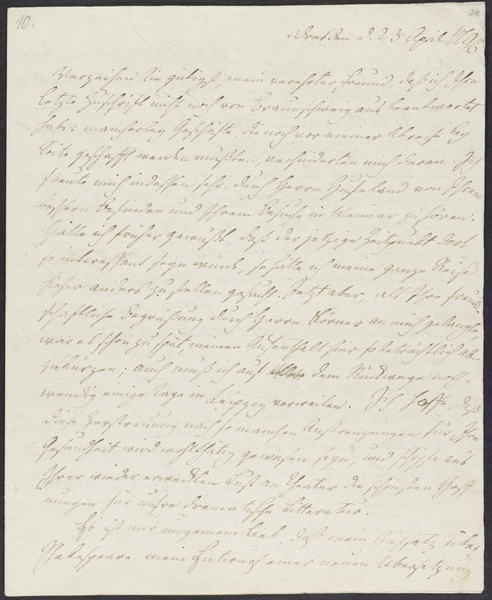 10.
Dresden d. 23 April 1796
Verzeihen Sie gütigst, mein verehrter Freund, daß ich Ihre
letzte Zuschrift nicht noch von Braunschweig aus beantwortet
habe; mancherley Geschäfte die noch vor meiner Abreise bey
Seite geschafft werden mußten, verhinderten mich daran. Ich
freute mich indessen sehr, durch Herrn Hufeland von Ihrem
bessern Befinden und Ihrem Besuche in Weimar zu hören.
Hätte ich früher gewußt daß der jetzige Zeitpunkt dort
so interessant seyn würde, so hätte ich meine ganze Reise
lieber anders zu stellen gesucht. Jetzt aber, als Ihre freund-
schaftliche Begrüßung durch Herrn Körner an mich gelangte,
war es schon zu spät, meinen Aufenthalt hier so beträchtlich ab-
zukürzen; auch muß ich auf dem Rückwege noth-
wendig einige Tage in Leipzig verweilen. Ich hoffe, daß
diese Zerstreuung nach so manchen Anstrengungen für Ihre
Gesundheit wird wohlthätig gewesen seyn, und schöpfe aus
Ihrer wieder erweckten Lust am Theater die schönsten Hoff-
nungen für unsre dramatische Litteratur.
Es ist mir ungemein lieb, daß mein Aufsatz über
Shakespeare mein Entwurf einer neuen Übersetzung